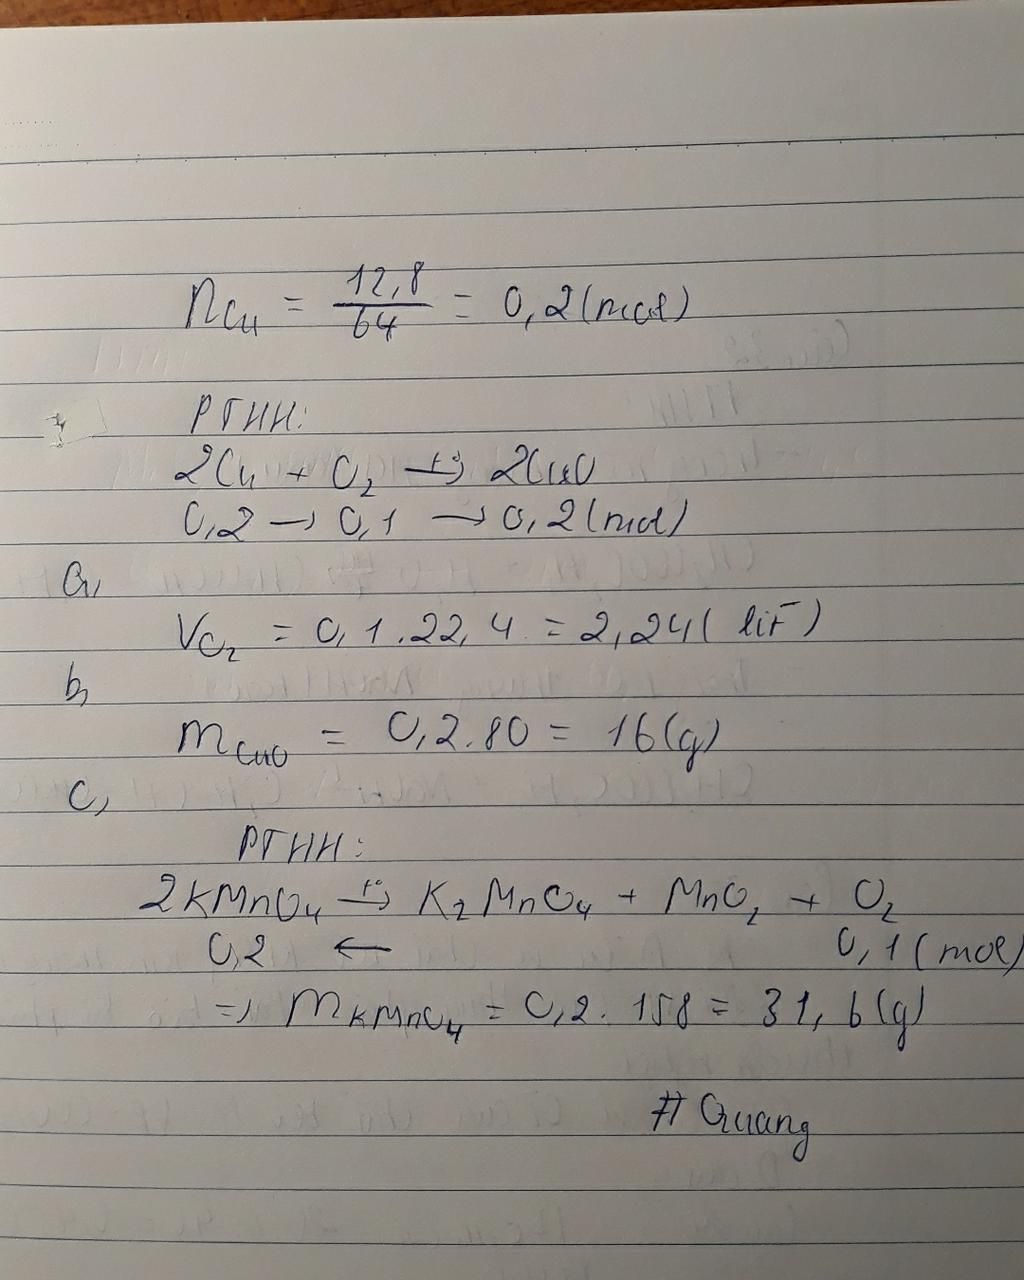 nCu = 12,8/64 = 0,2 (mol)
PTHH:
2Cu + O₂ –t°→ 2CuO
0,2 → 0,1 → 0,2 (mol)
a,
VO₂ = 0,1.22,4 = 2,24 (lít)
b,
mCuO = 0,2.80 = 16 (g)
c,
PTHH:
2KMnO₄ –t°→ K₂MnO₄ + MnO₂ + O₂
0,2 ← 0,1 (mol)
=> mKMnO₄ = 0,2. 158 = 31,6 (g)
# Quang